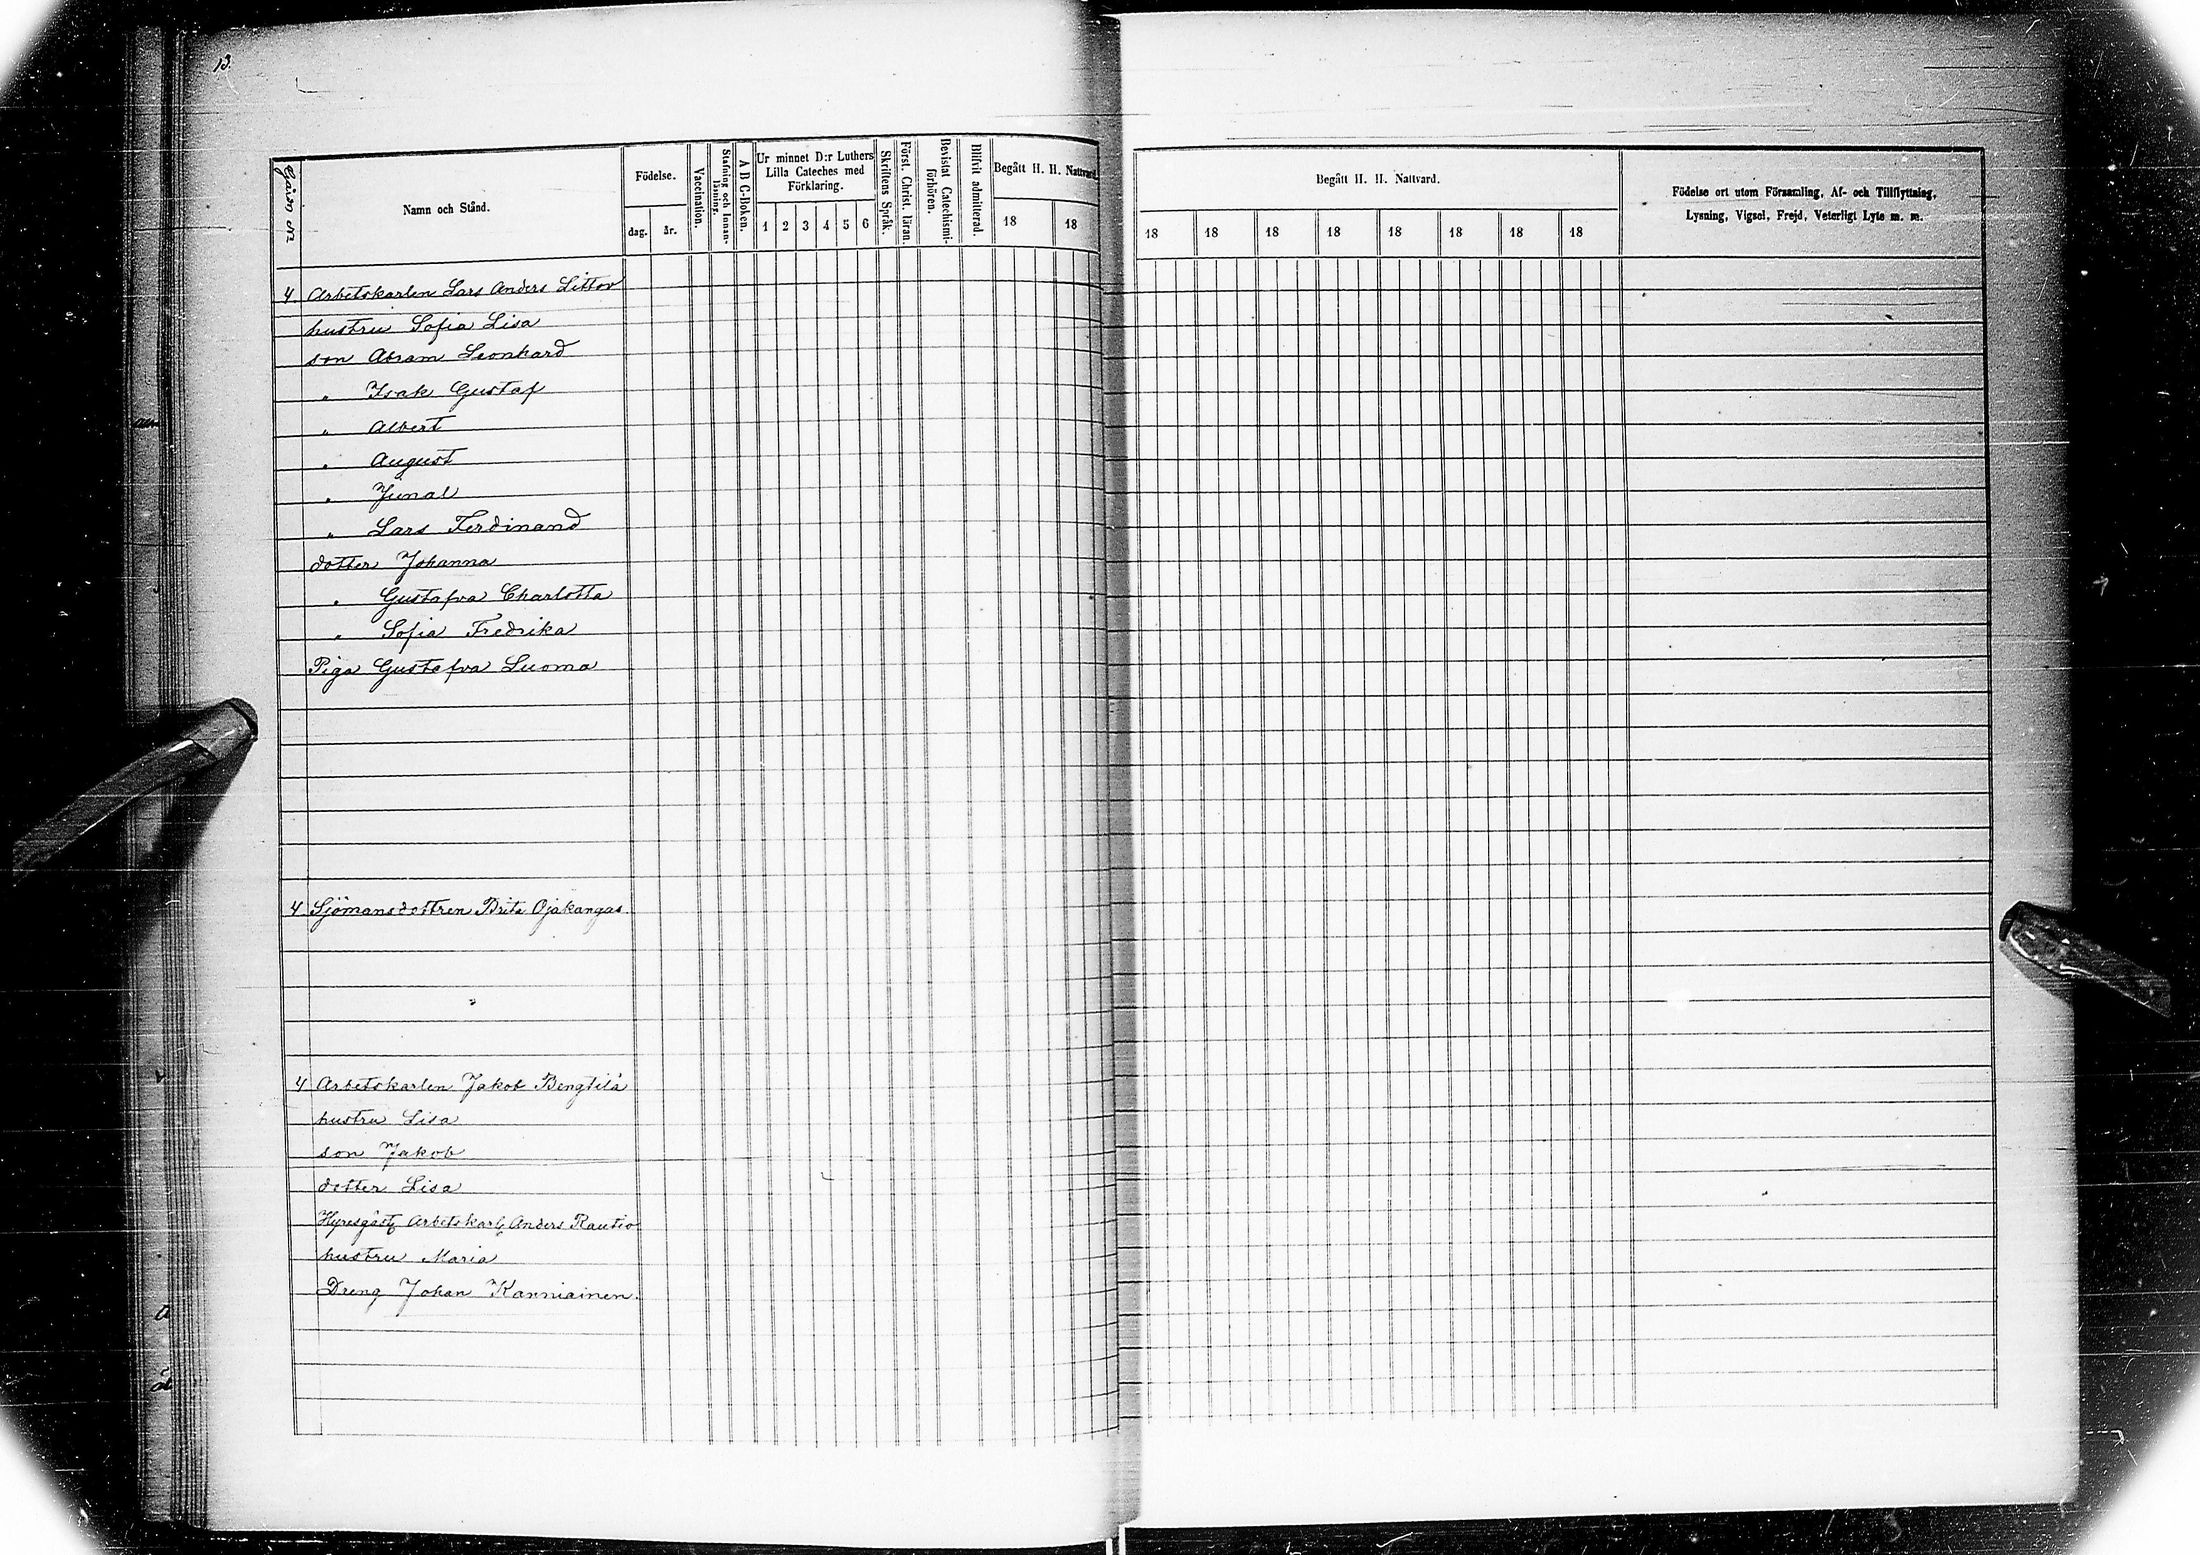 13.
Gård n:r
Namn och Stånd.
Födelse.
dag. år.
Vaccination.
Stafning och Innan-läsning.
A B C-Boken.
Ur minnet D:r Luthers
Lilla Cateches med
Förklaring.
1 2 3 4 5 6
Skriftens Språk.
Först. Christ. läran.
Bevistat Catechismi-förhören.
Blifvit admitterad.
Begått H. H. Nattvard.
18 18
Begått H. H. Nattvard.
18 18 18 18 18 18 18 18
Födelse ort utom Församling, Af- och Tillflyttning,
Lysning, Vigsel, Frejd, Veterligt Lyte m. m.
4 Arbetskarlen Lars Anders Littov
hustru Sofia Lisa
son Abram Leonhard
" Isak Gustaf
" Albert
" August
" Junal
" Lars Ferdinand
dotter Johanna
" Gustafva Charlotta
" Sofia Fredrika
Piga Gustafva Luoma
4 Sjömansdottren Brita Ojakangas.
4 Arbetskarlen Jakob Bengtilä
hustru Lisa
son Jakob
dotter Lisa
Hyresgäst Arbetskarl Anders Rautio
hustru Maria
Dreng Johan Kanniainen.